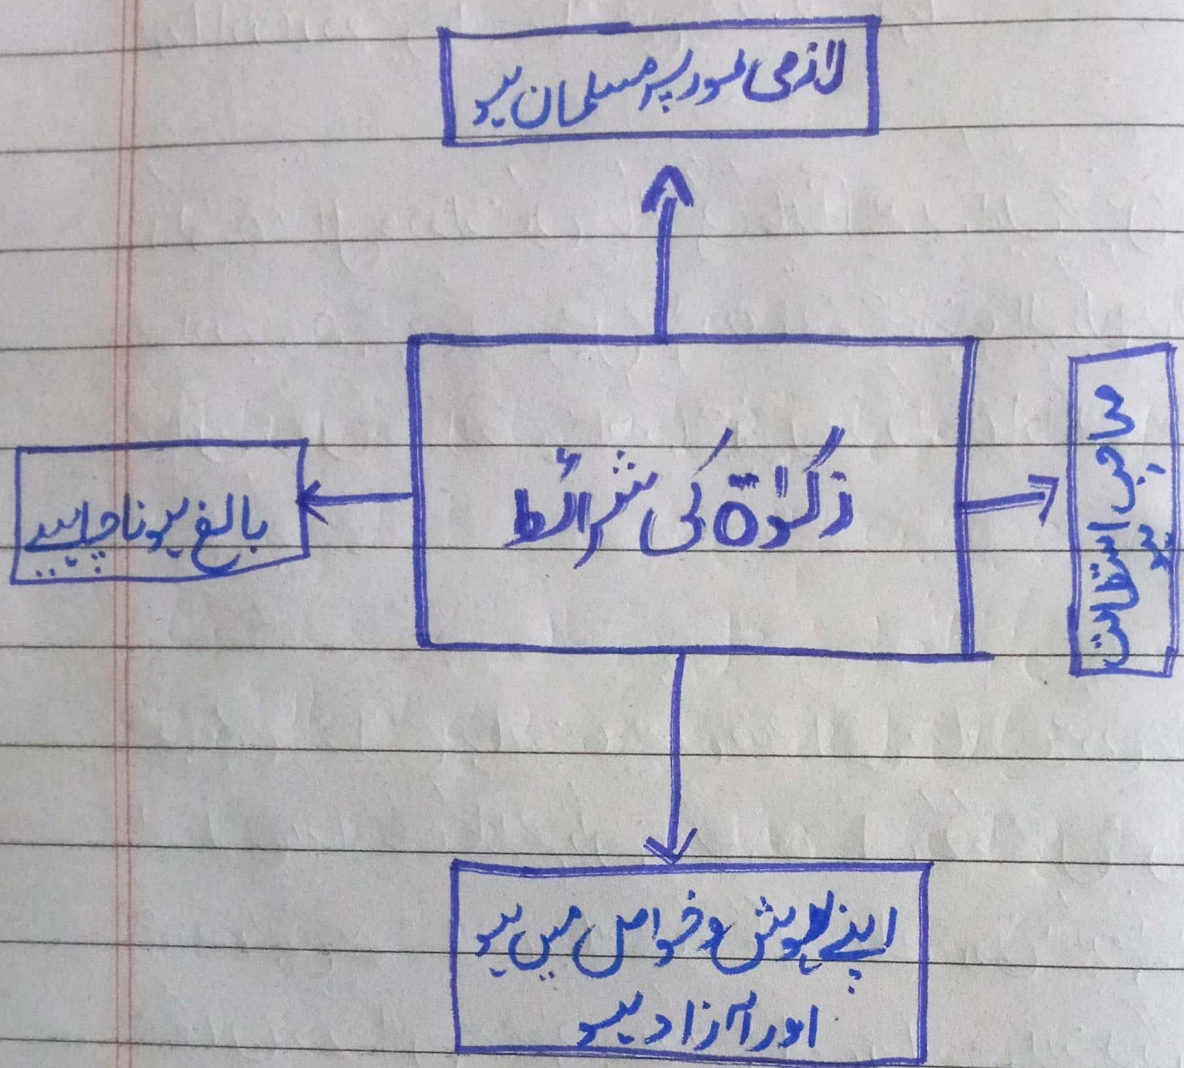 لازمی طور پر مسلمان ہو
زکوٰۃ کی شرائط
صاحب استطاعت
ہو
بالغ ہونا چاہیے
اپنے ہوش و خواص میں ہو
اور آزاد ہو